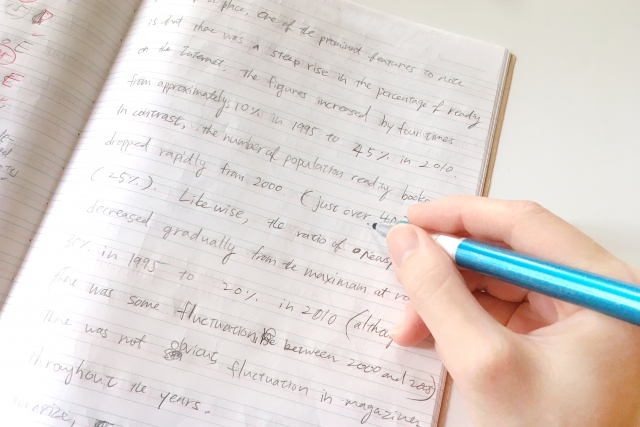 place, One of the prominent features to note
is that there was a steep rise in the percentage of reading
on the Internet. The figures increased by four times
from approximately 10% in 1995 to 45% in 2010.
In contrast, the number of population reading books
dropped rapidly from 2000 (just over
(25%). Likewise, the ratio of
decreased gradually from the maximam at
in 1995 to 20% in 2010 (
was some fluctuation between 2000 and 2005)
was not obvious fluctuation in magazines
throughout the years.